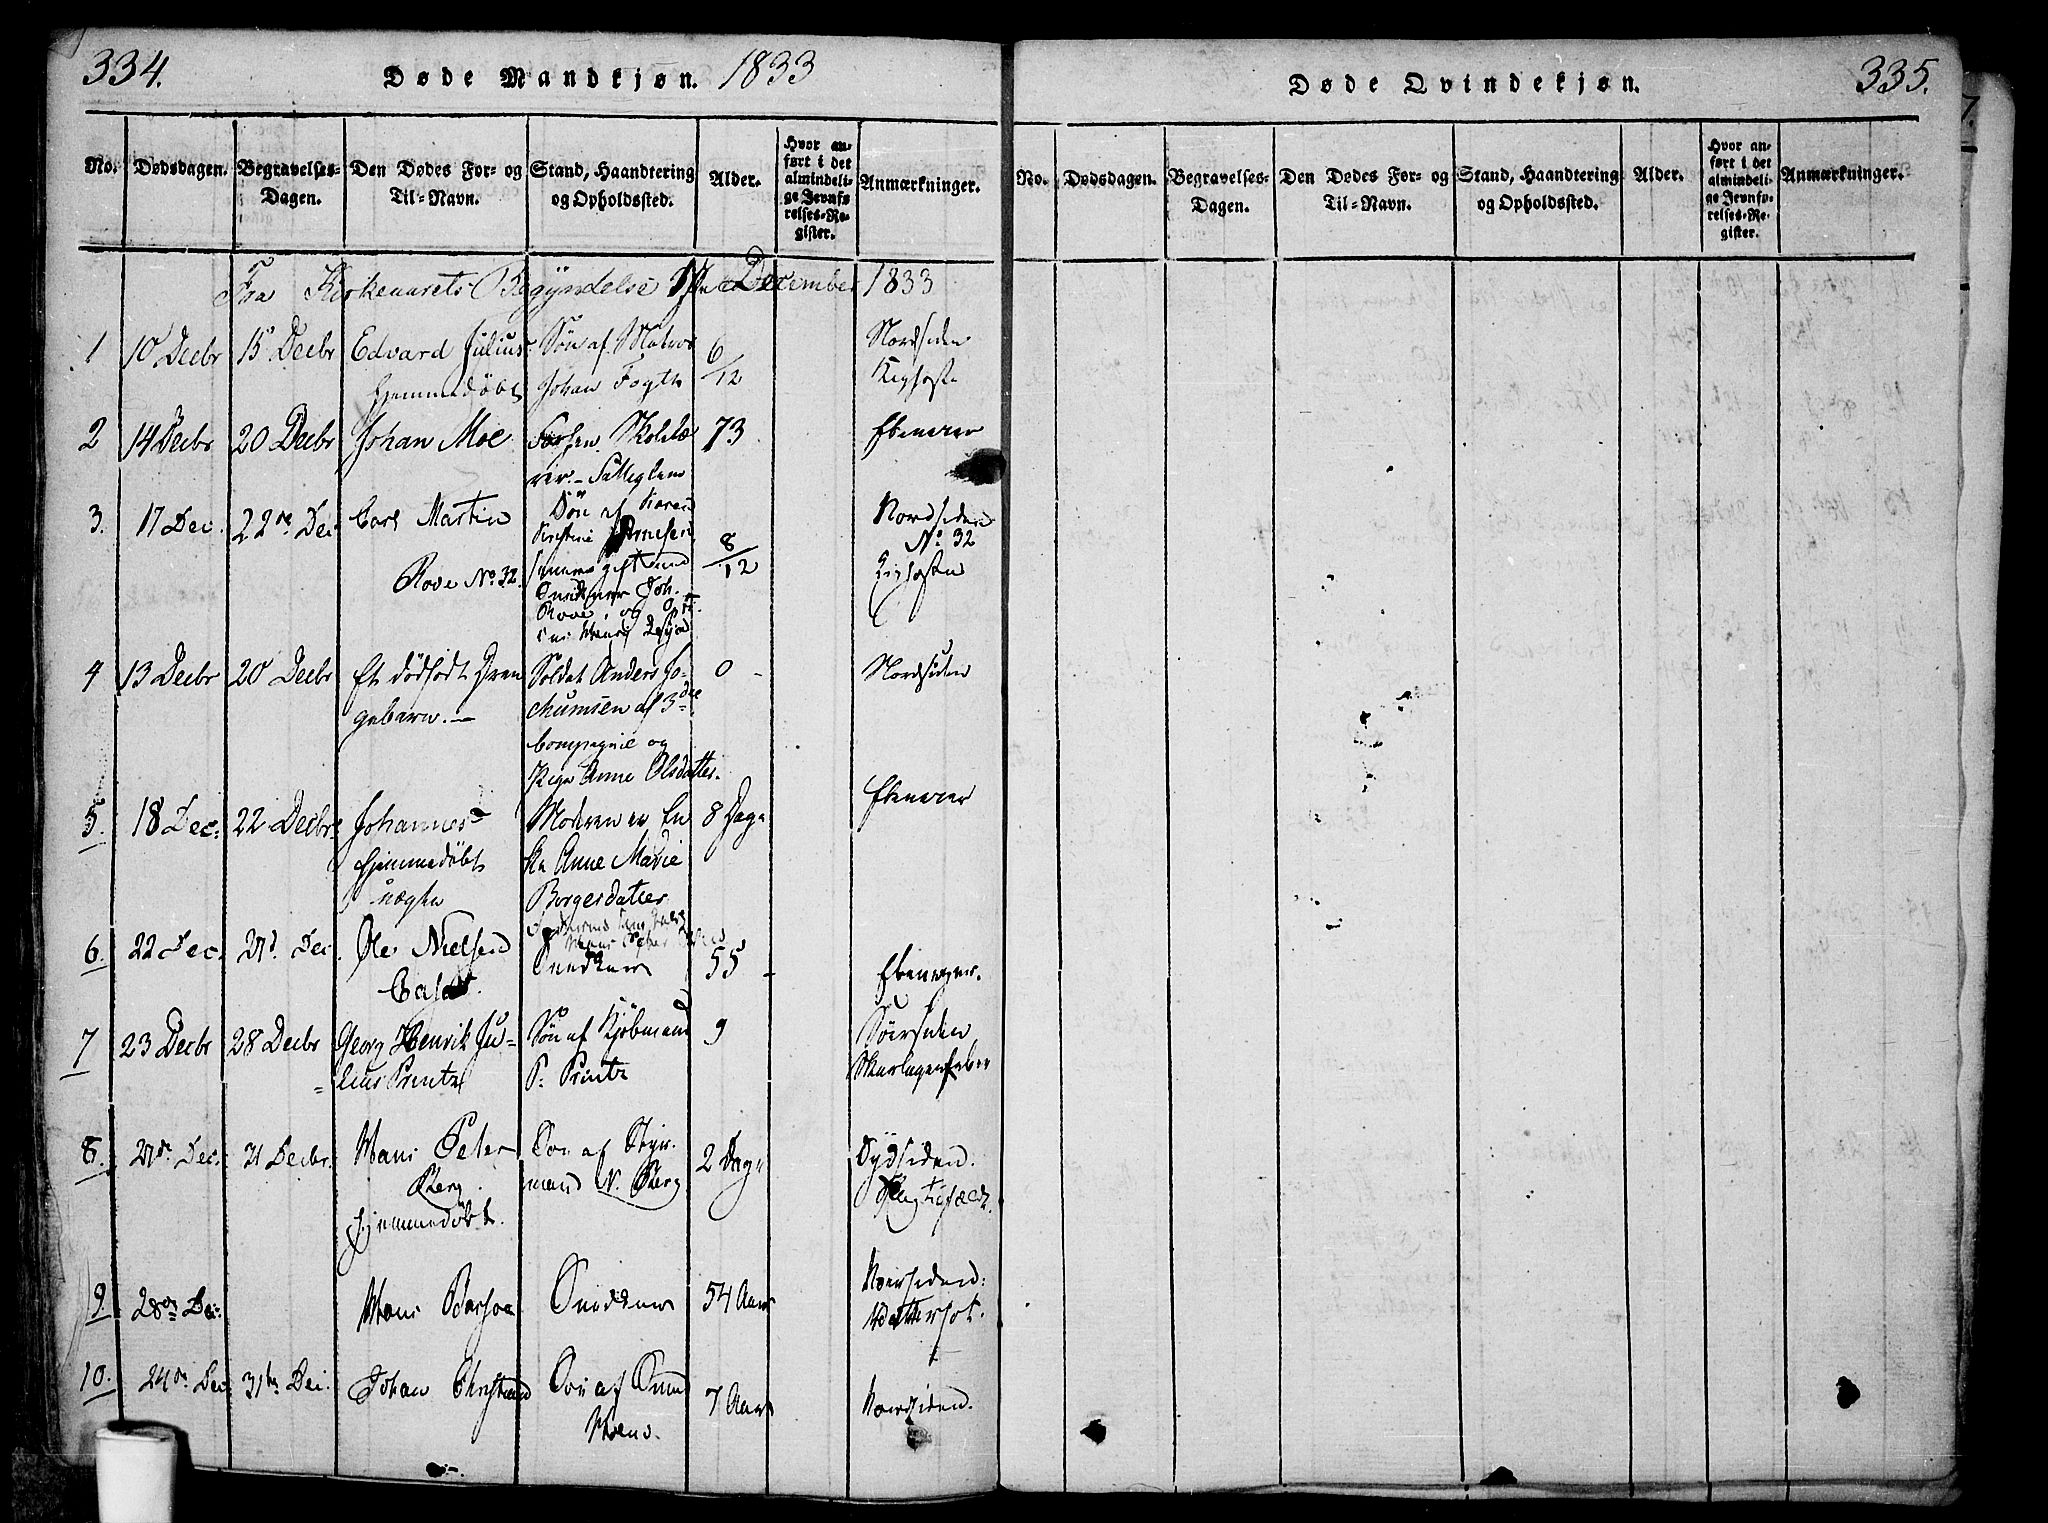 334.
Døde Mandkjøn. 1833
No. Dødsdagen. Begravelses-Dagen. Den Dødes For- og Til-Navn. Stand, Haandtering og Opholdssted. Alder. Hvor anført i det almindelige Jevnførelses-Register. Anmærkninger.
Fra Kirkeaarets Begyndelse December 1833
1 10 Decbr 15 Decbr Edvard Julius Søn af Matros 6/12 Nordsiden
hjemmedøbt Johan Fogth Kighoste
2 14 Decbr 20 Decbr Johan Moe 73 Ebenezer
3. 17 Dec. 22de Dec Carl Martin Søn af Karen Nordsiden
Kirstine Arnesen No 32
Rove No 32. 8/12 Kighosten
Snedker Joh.
Rove, og
4 13 Decbr 20 Decbr Et dødfødt Dren Soldat Anders Jo- 0 - Nordsiden
gebarn. — chumsen af 3die
Compagnie og
Pige Anne Olsdatter.
5. 18 Dec: 22 Decbr Johannes Moderen er En 8 Dage Ebenezer
hjemmedøbt ke Anne Marie
uægte Borgersdatter
6. 22 Dec. Dec. Ole Nielsen Snedker 55 - Ebenezer.
7 23 Decbr 28 Decbr Georg Henrik Ju- Søn af Kjøbmand 9 Sørsiden
lius Printz P. Printz Skarlagensfeber
8. Dec. 31 Decbr. Hans Peter Søn af Styr- 2 Dage Sydsiden.
Berg. mand N. Berg
hjemmedøbt.
9. 28de Dec: Hans Snedker 54 Aar Nordsiden:
Vattersot.
10. 24de Dec 31te Dec. Johan Christian Søn af 7 Aar Nordsiden.
335.
Døde Qvindekjøn.
No. Dødsdagen. Begravelses-Dagen. Den Dødes For- og Til-Navn. Stand, Haandtering og Opholdssted. Alder. Hvor anført i det almindelige Jevnførelses-Register. Anmærkninger.